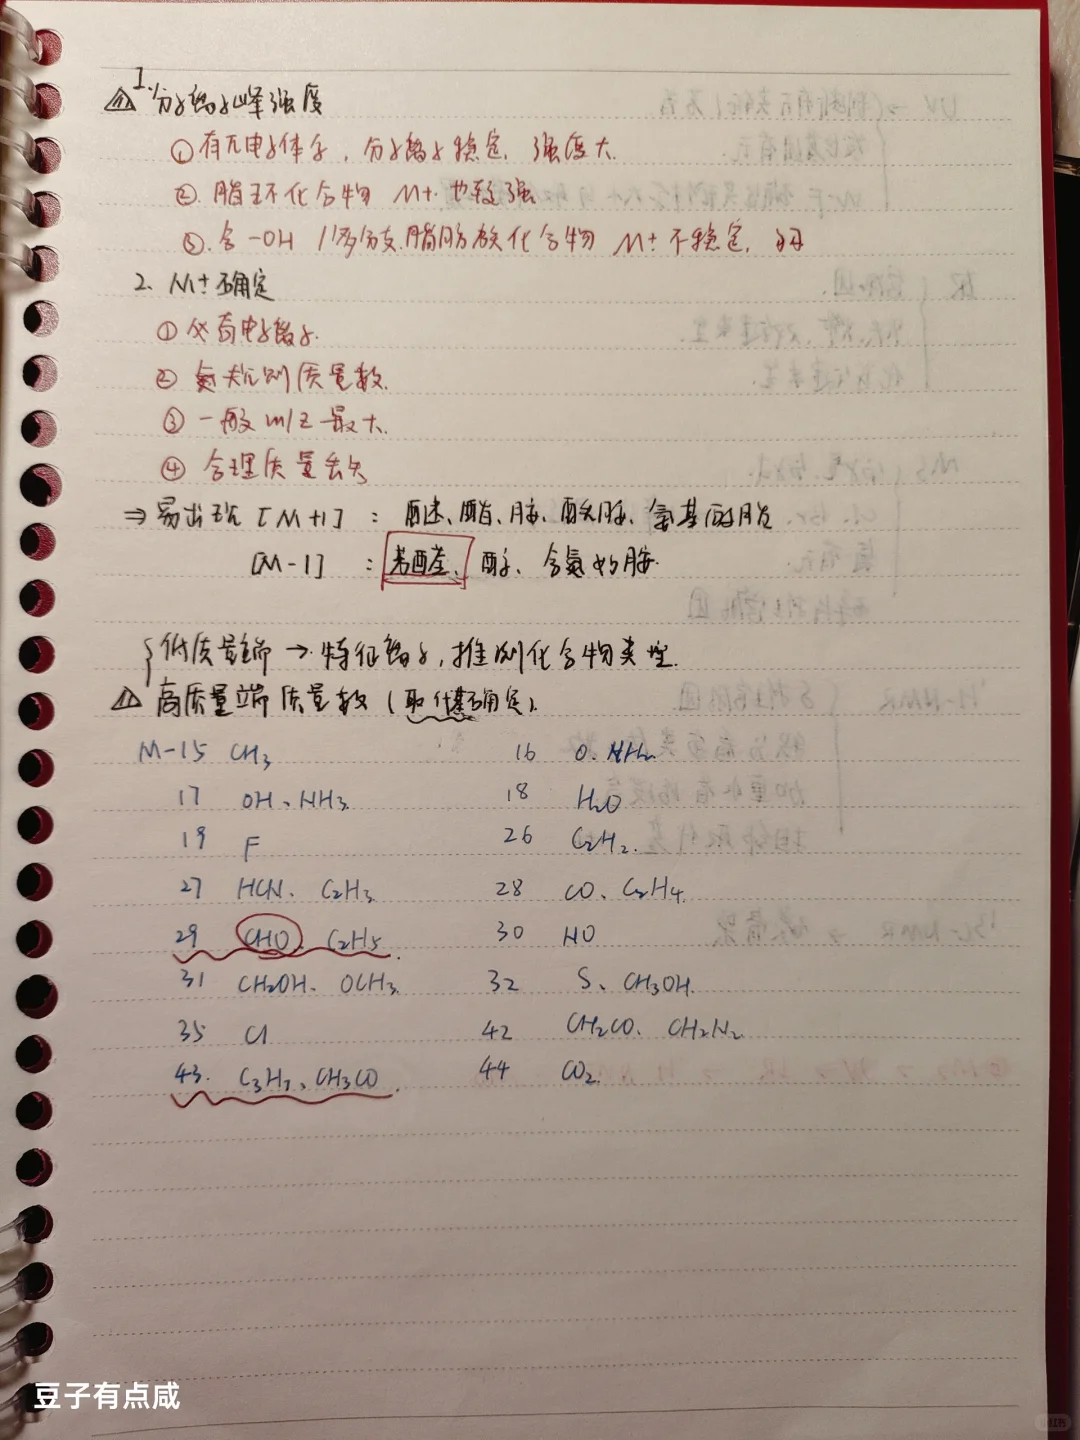 1. 分子离子峰强度
① 有π电子体系，分子离子稳定，强度大.
② 脂环化合物 M+· 也较强
③ 含-OH / 多分支脂肪族化合物 M+· 不稳定，弱
2. M+· 确定
① 必奇电子离子.
② 氮规则 质量数.
③ 一般 m/z 最大.
④ 合理质量丢失
⇒ 易出现 [M+1] : 醚、酯、胺、酰胺、氨基酸脂
[M-1] : 芳醛、醇、含氮的胺.
{低质量端 → 特征离子，推测化合物类型.
高质量端 质量数 (取代基确定).
M-15 CH3 16 O. NH2
17 OH、NH3. 18 H2O
19 F 26 C2H2.
27 HCN、C2H3 28 CO、C2H4.
29 CHO、C2H5. 30 NO
31 CH2OH、OCH3. 32 S、CH3OH.
35 Cl 42 CH2CO、CH2N2
43. C3H7、CH3CO. 44 CO2.
豆子有点咸
小红书